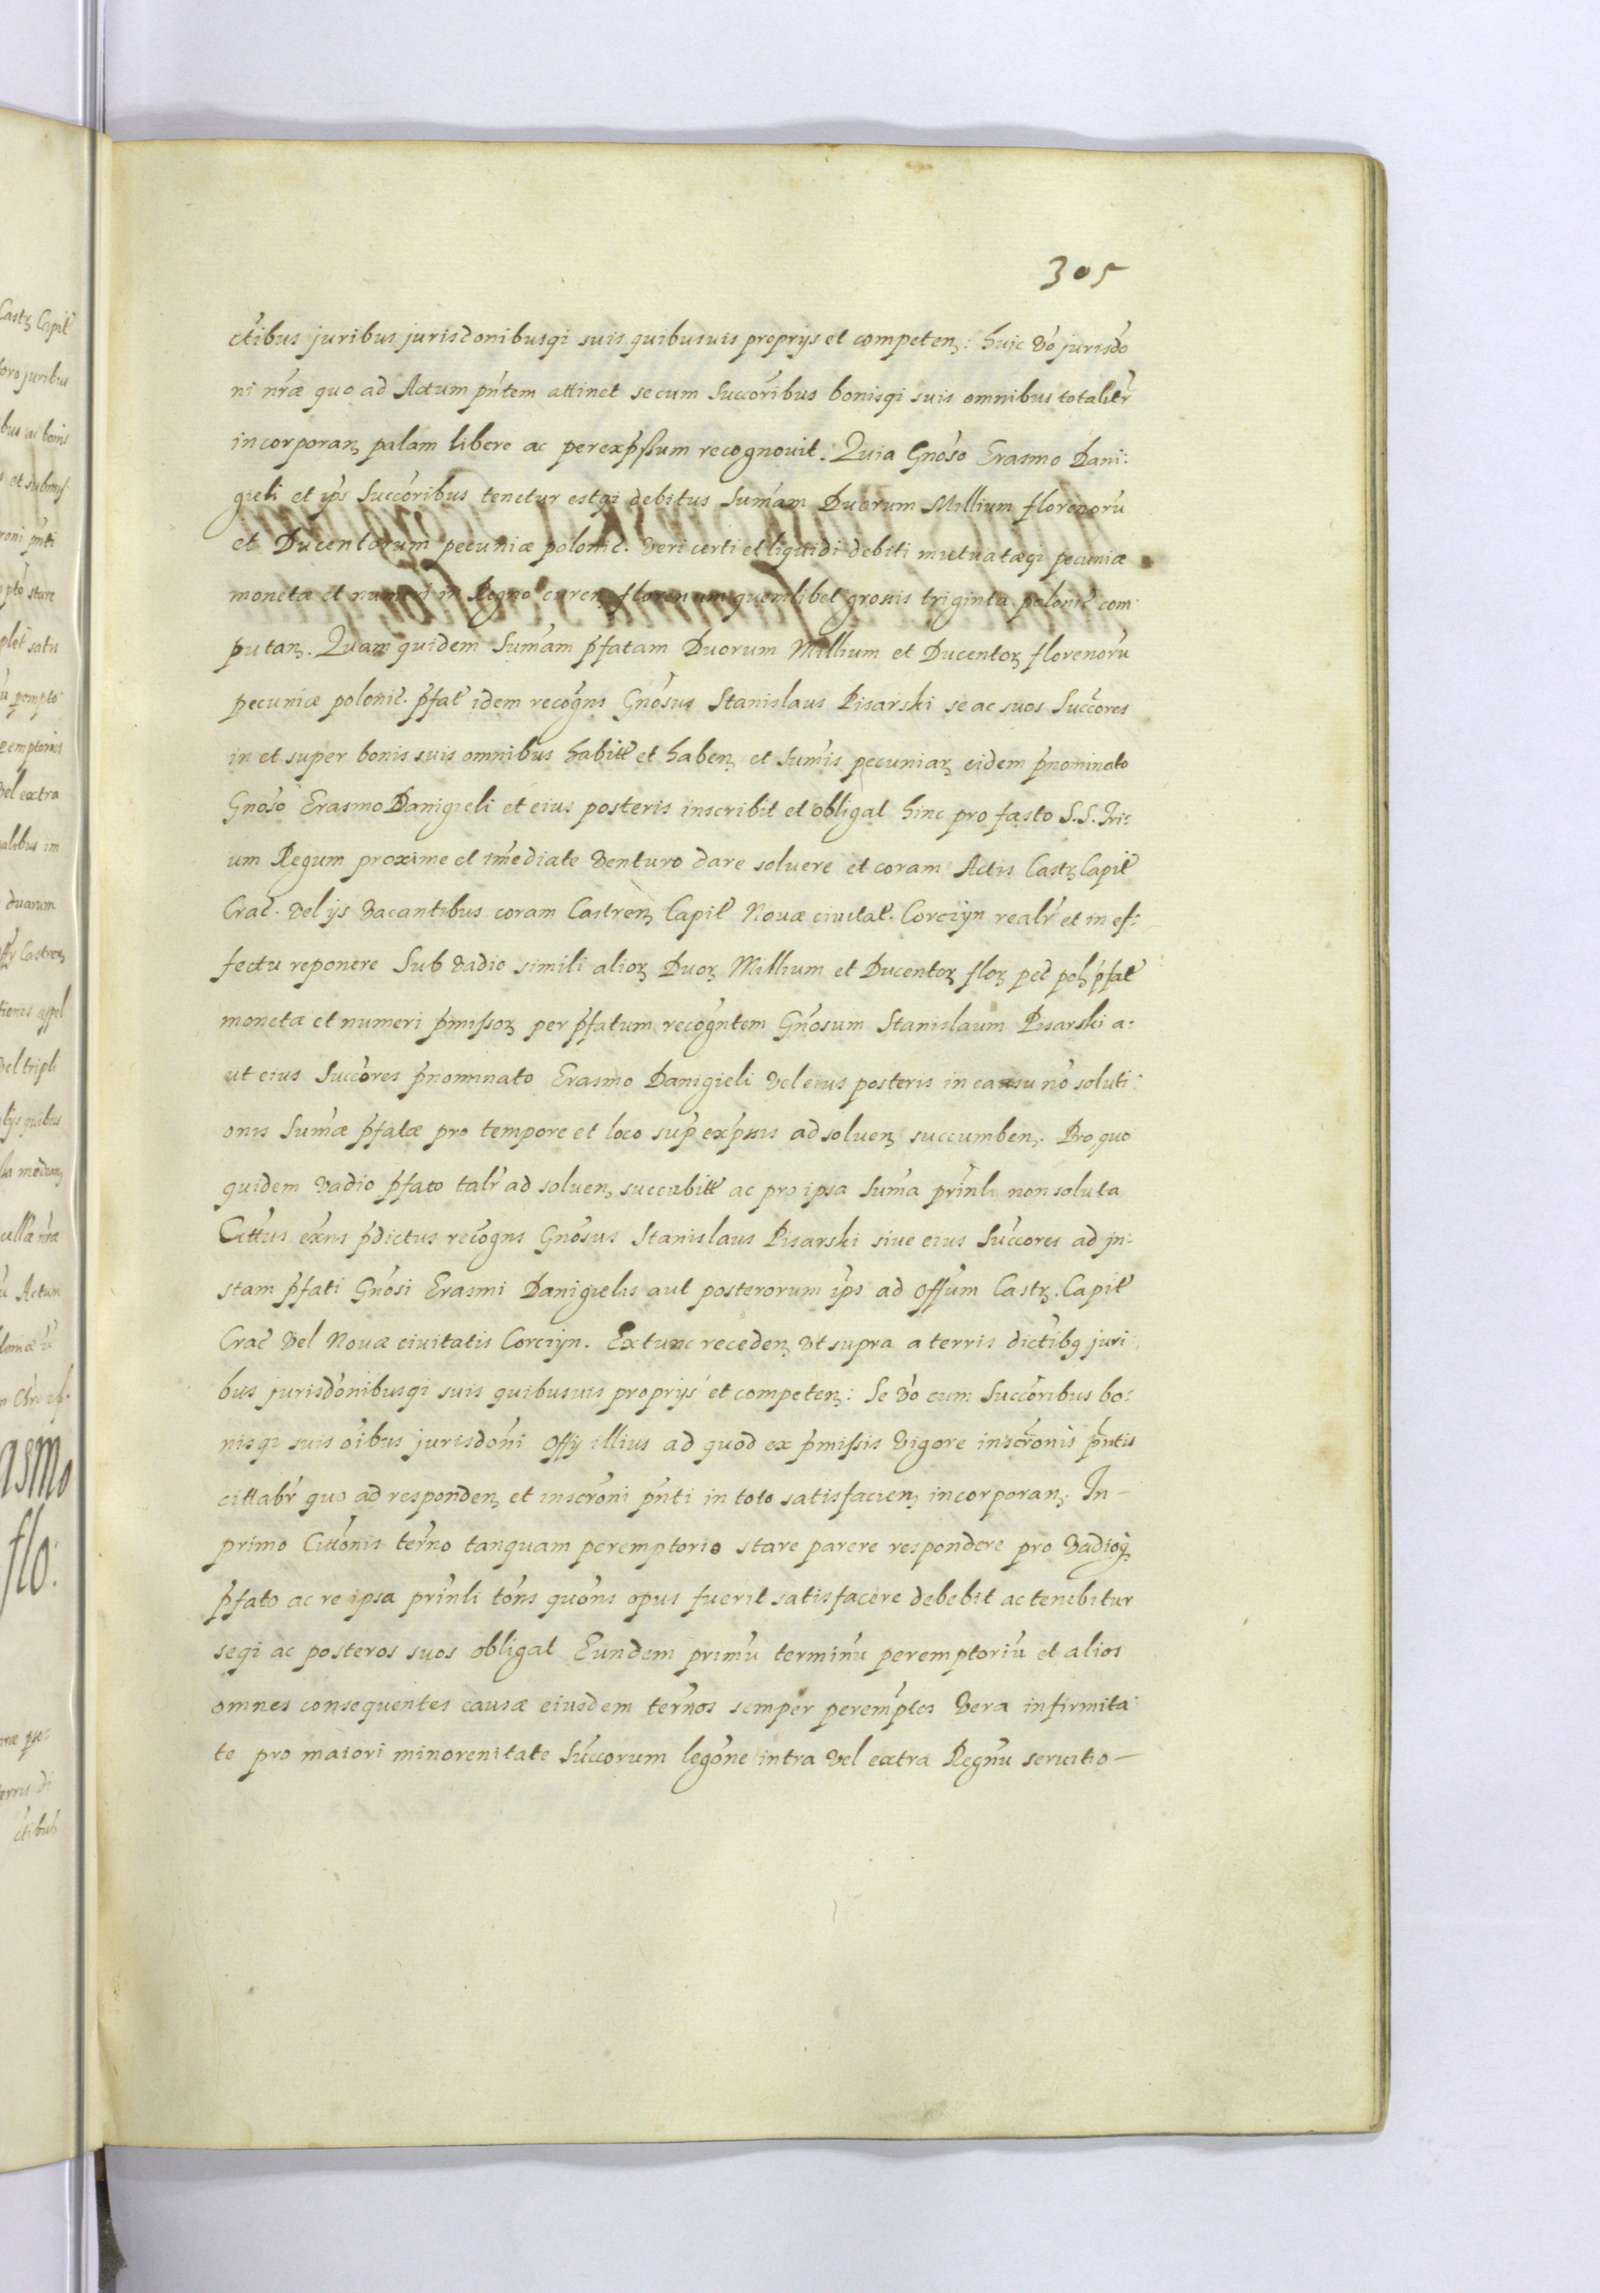 305
ctibus juribus jurisdonibusqi suis quibusuis proprijs et competen: huic vo jurisdo
ni nrae quo ad Actum pntem attinet secum Succoribus bonisqi suis omnibus totalitr
incorporan palam libere ac perexpssum recognovit. Quia Gnoso Erasmo Dani:
gieli et ips Succoribus tenetur estqi debitus Sumam Duorum Millium florenoru
et Ducentorum pecuniæ polonic. veri certi et liquidi debiti mutuatæqi pecuniæ
monetæ et numeri in Regno curen florenum quemlibet grossis triginta polonic com
putan. Quam quidem Sumam pfatam Duorum Millium et Ducentor florenoru
pecuniæ polonic. pfat idem recogns Gnosus Stanislaus Pisarski se ac suos Succores
in et super bonis suis omnibus habitt et haben et Sumis pecuniar eidem pnominato
Gnoso Erasmo Danigieli et eius posteris inscribit et obligat hinc pro festo S.S. Tri:
um Regum proxime et imediate venturo dare soluere et coram Actis Castr Capit
Crac. vel ijs vacantibus coram Castren Capit Nouæ ciuitat. Corczyn realr et in ef:
fectu reponere Sub vadio simili alior Duor Millium et Ducentor flor pec pol pfat
monetæ et numeri pmissor per pfatum recogntem Gnosum Stanislaum Pisarski a:
ut eius Succores pnominato Erasmo Danigieli vel eius posteris in casu no soluti:
onis Sumæ pfatæ pro tempore et loco sup expssis ad soluen succumben. Pro quo
quidem vadio pfato talr ad soluen succubitt ac pro ipsa Suma prinli non soluta
Cittus exns pdictus recogns Gnosus Stanislaus Pisarski siue eius Succores ad in:
stam pfati Gnosi Erasmi Danigielis aut posterorum ips ad Offum Castr. Capit
Crac vel Nouæ ciuitatis Corczyn. Extunc receden vt supra a terris dictibq juri
bus jurisdonibusqi suis quibusuis proprijs et competen: Se vo cum Succoribus bo:
nisqi suis oibus jurisdoni Offij illius ad quod ex pmissis vigore inscronis pntis
cittabr quo ad responden et inscroni pnti in toto satisfacien incorporan. In
primo Cittonis terno tanquam peremptorio stare parere respondere pro vadioq
pfato ac re ipsa prinli tons quons opus fuerit satisfacere debebit ac tenebitur
seqi ac posteros suos obligat Eundem primu terminu peremptoriu et alios
omnes consequentes causæ eiusdem ternos semper peremptos vera infirmita
te pro maiori minorenitate Succorum legone intra vel extra Regnu seruitio